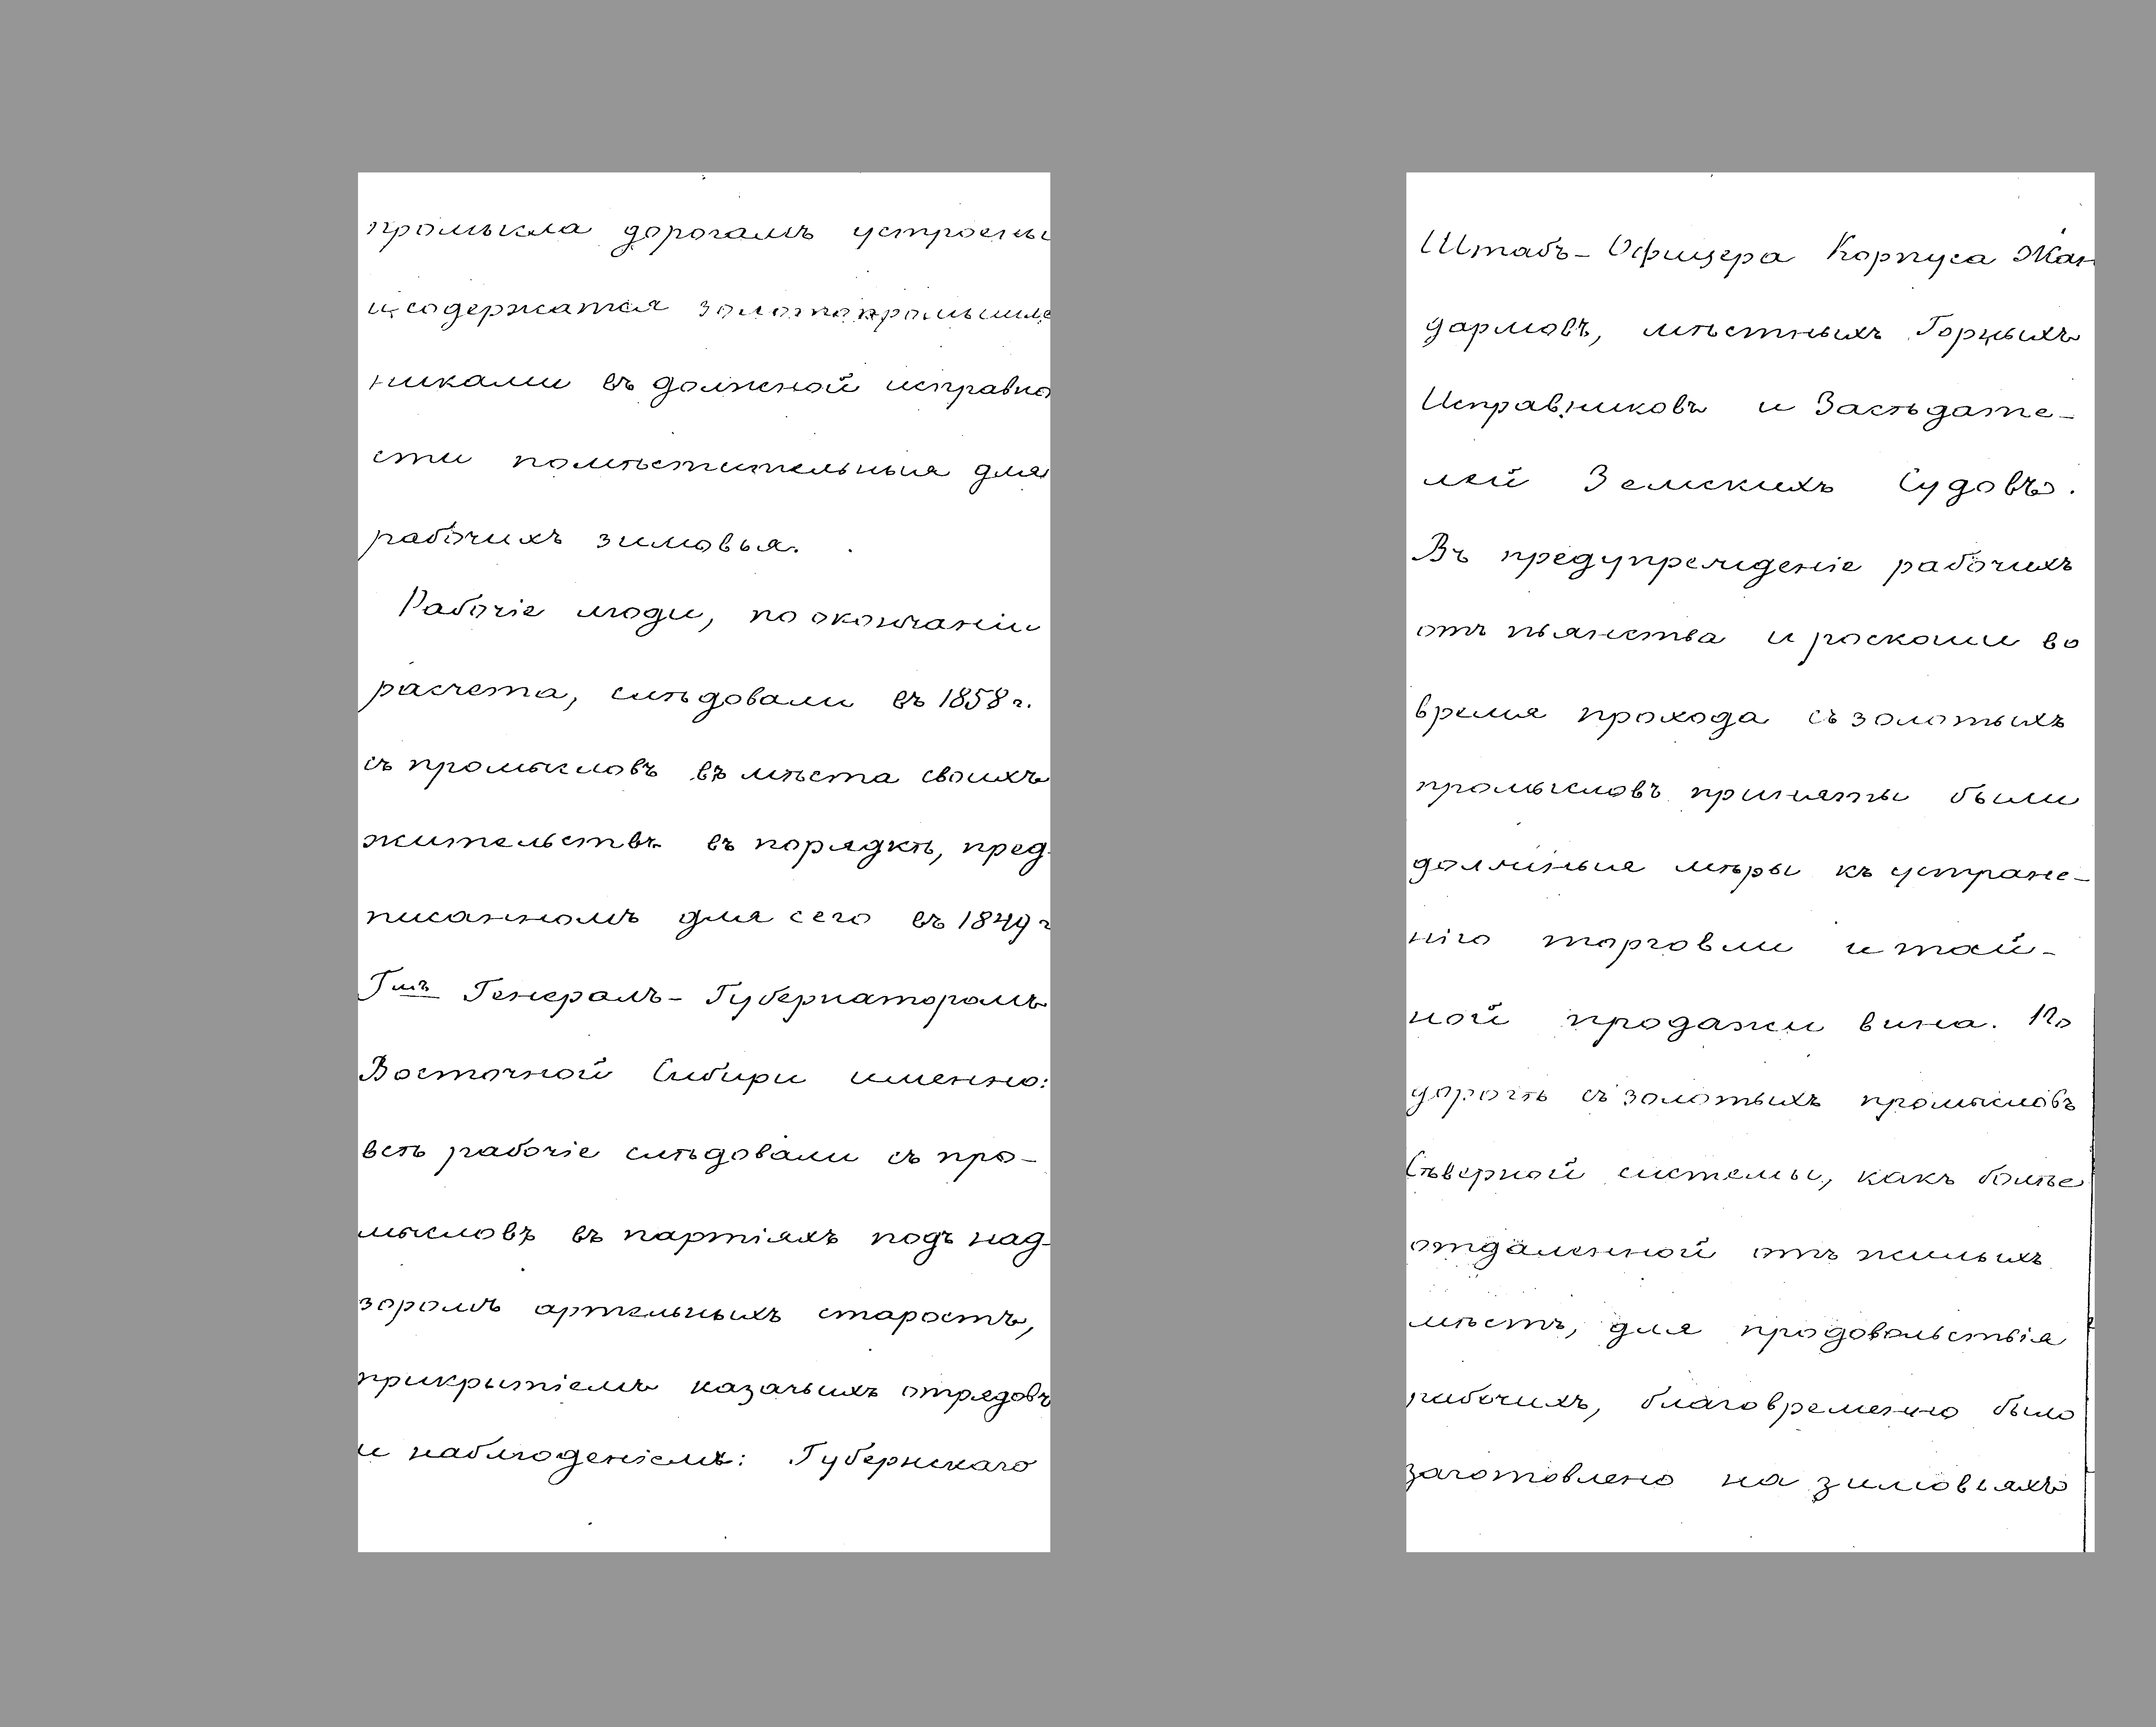 промысла дорогамъ устроены
и содержатся золотопромышле
никами въ должной исправно
сти помѣстительныя для
рабочихъ зимовья.
Рабочіе люди, по окончаніи
расчета, слѣдовали въ 1858 г.
съ промысловъ въ мѣста своихъ
жительствъ въ порядкѣ, пред-
писанномъ для сего въ 1849 г
Гмъ Генералъ-Губернаторомъ
Восточной Сибири именно:
всѣ рабочіе слѣдовали съ про-
мысловъ въ партіяхъ подъ над-
зоромъ артельныхъ старостъ,
прикрытіемъ казачьихъ отрядовъ
и наблюденіемъ: Губернскаго
Штабъ-Офицера Корпуса Жан
дармовъ, мѣстныхъ Горныхъ
Исправниковъ и Засѣдате-
лей Земскихъ Судовъ.
Въ предупрежденіе рабочихъ
отъ пьянства и роскоши во
время прохода съ золотыхъ
промысловъ приняты были
должныя мѣры къ устране-
нію торговли и тай-
ной продажи вина. По
дорогѣ съ золотыхъ промысловъ
Сѣверной системы, какъ болѣе
отдаленной отъ жилыхъ
мѣстъ, для продовольствія
рабочихъ, благовременно было
заготовлено на зимовьяхъ